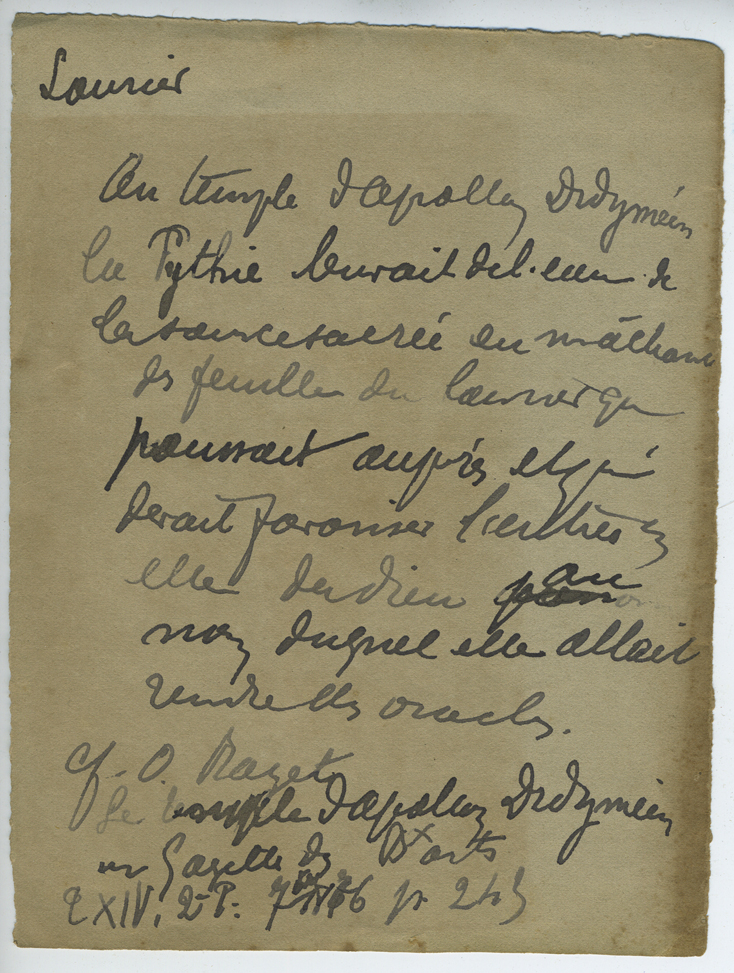 Laurier
Au temple d'Apollon Didyméen
la Pythie buvait de l'eau de
la source sacrée en mâchant
des feuilles du laurier qui
poussait auprès et qui
devait favoriser l'entrée en
elle du dieu au
nom duquel elle allait
rendre des oracles.
cf. O. Rayet
Le temple d'Apollon Didyméen
in Gazette des Bx arts
t XIV, 2e P.